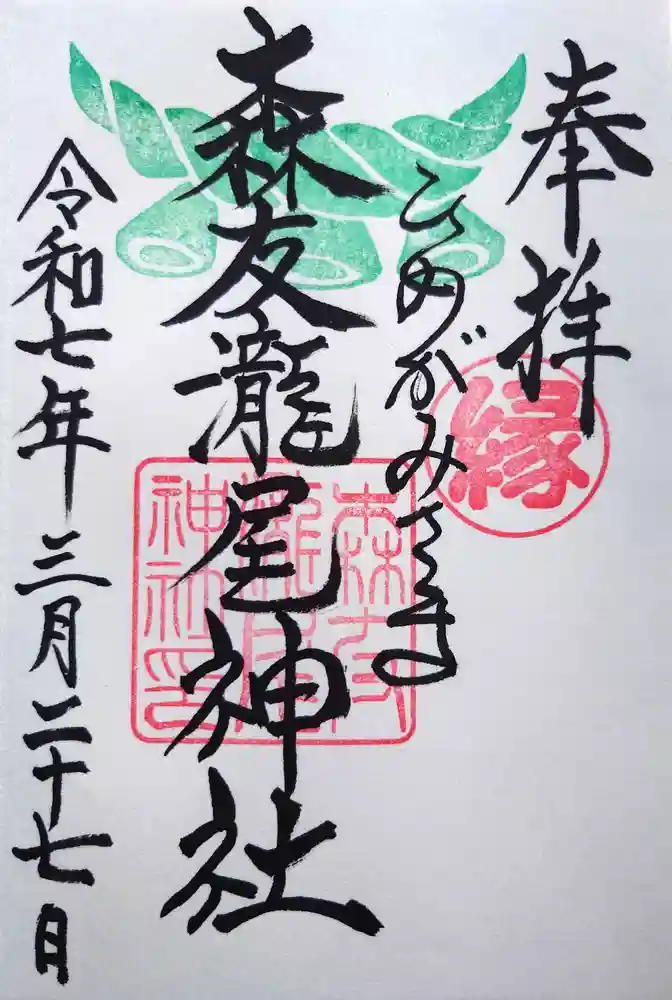 奉拝
縁
ひめがみさま
森友瀧尾神社
森友
瀧尾
神社印
令和七年三月二十七日